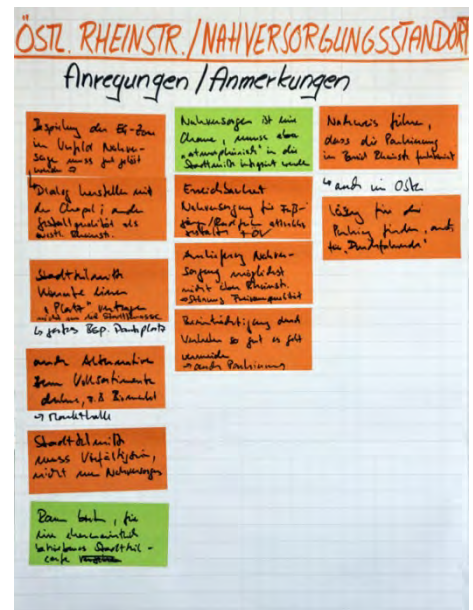 ÖSTL. RHEINSTR./NAHVERSORGUNGSSTANDORT
Anregungen/Anmerkungen
Bespielung der EG-Zone
im Umfeld Nahver-
sorger muss gut gelöst
werden
Dialog herstellen mit
der Chapel; andere
Gestaltqualität als
westl. Rheinstr.
Stadtteilmitte
könnte einen
"Platz" vertragen
nicht nur die Stadtstrasse
↳ gutes Bsp. Dantplatz
auch Alternative
zum Vollsortimenter
denken, z.B. Biomarkt
→ Markthalle
Stadtteilmitte
muss Vielfältig sein,
nicht nur Nahversorger
Raum, für
eine ehrenamtlich
betriebenes Stadtteil-
cafe
Nahversorger ist eine
Chance, muss aber
"atmosphärisch" in die
Stadtmitte integriert werden
Erreichbarkeit
Nahversorgung für Fuß-
gänger/Radfahrer attraktiv
gestalten + ÖV
Anlieferung Nahver-
sorgung möglichst
nicht über Rheinstr.
→ Störung Freiraumqualität
Beeinträchtigung durch
Verkehr so gut es geht
vermeiden
→ auch Parkierung
Nachweis führen,
dass die Parkierung
im Bereich Rheinstr. funktioniert
↳ auch im Osten
Lösung für die
Parking finden, auch
für "Durchfahrende"